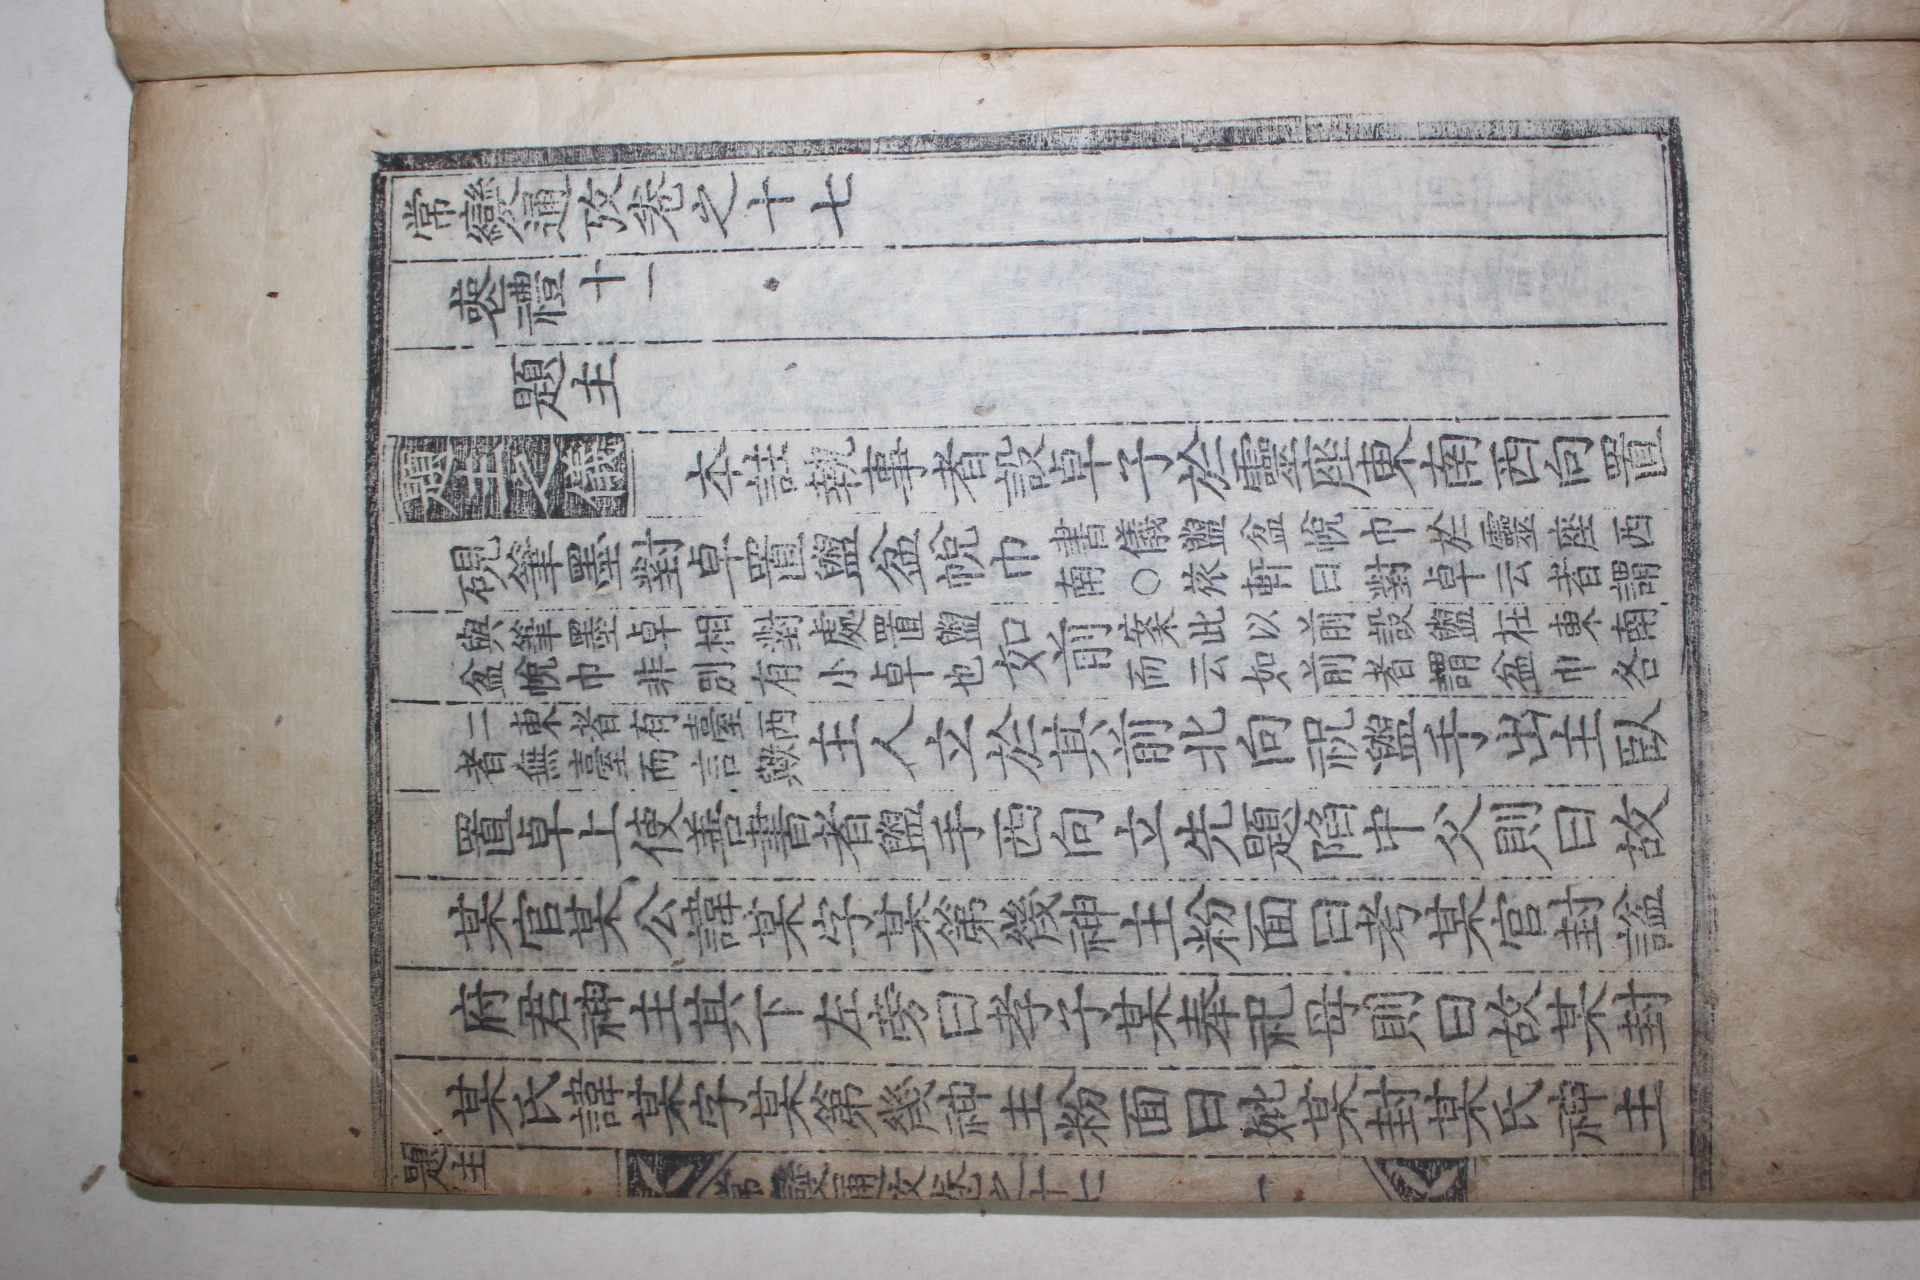 常變通攷卷之十七
喪禮十一
題主
題主之儀 本註執事者設卓子於靈座東南西向置
硯筆墨對卓置盥盆帨巾
書儀盥盆帨巾於靈座西
南○旅軒曰對卓云者謂
與筆墨卓相對處置盥
盆帨巾非別有小卓也
如前
案此以前設盥在東南
而云如前者謂盆巾各
二東者有臺西
者無臺而言歟
主人立於其前北向祝盥手出主臥
置卓上使善書者盥手西向立先題陷中父則曰故
某官某公諱某字某第幾神主粉面曰考某官封諡
府君神主其下左旁曰孝子某奉祀母則曰故某封
某氏諱某字某第幾神主粉面曰妣某封某氏神主
題主
常變通攷卷之十七
一